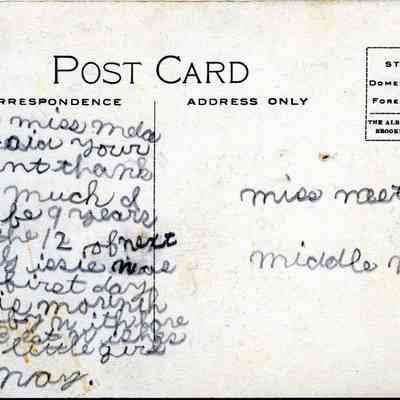 POST CARD
RRESPONDENCE
ADDRESS ONLY
ST
DOME
FORE
THE ALB
BROOK
miss mda
said your
nt thank
much I
be 9 years
the 12 of next
issie was
first day
month
by with love
best wishes
little girl
may.
miss neet
middle